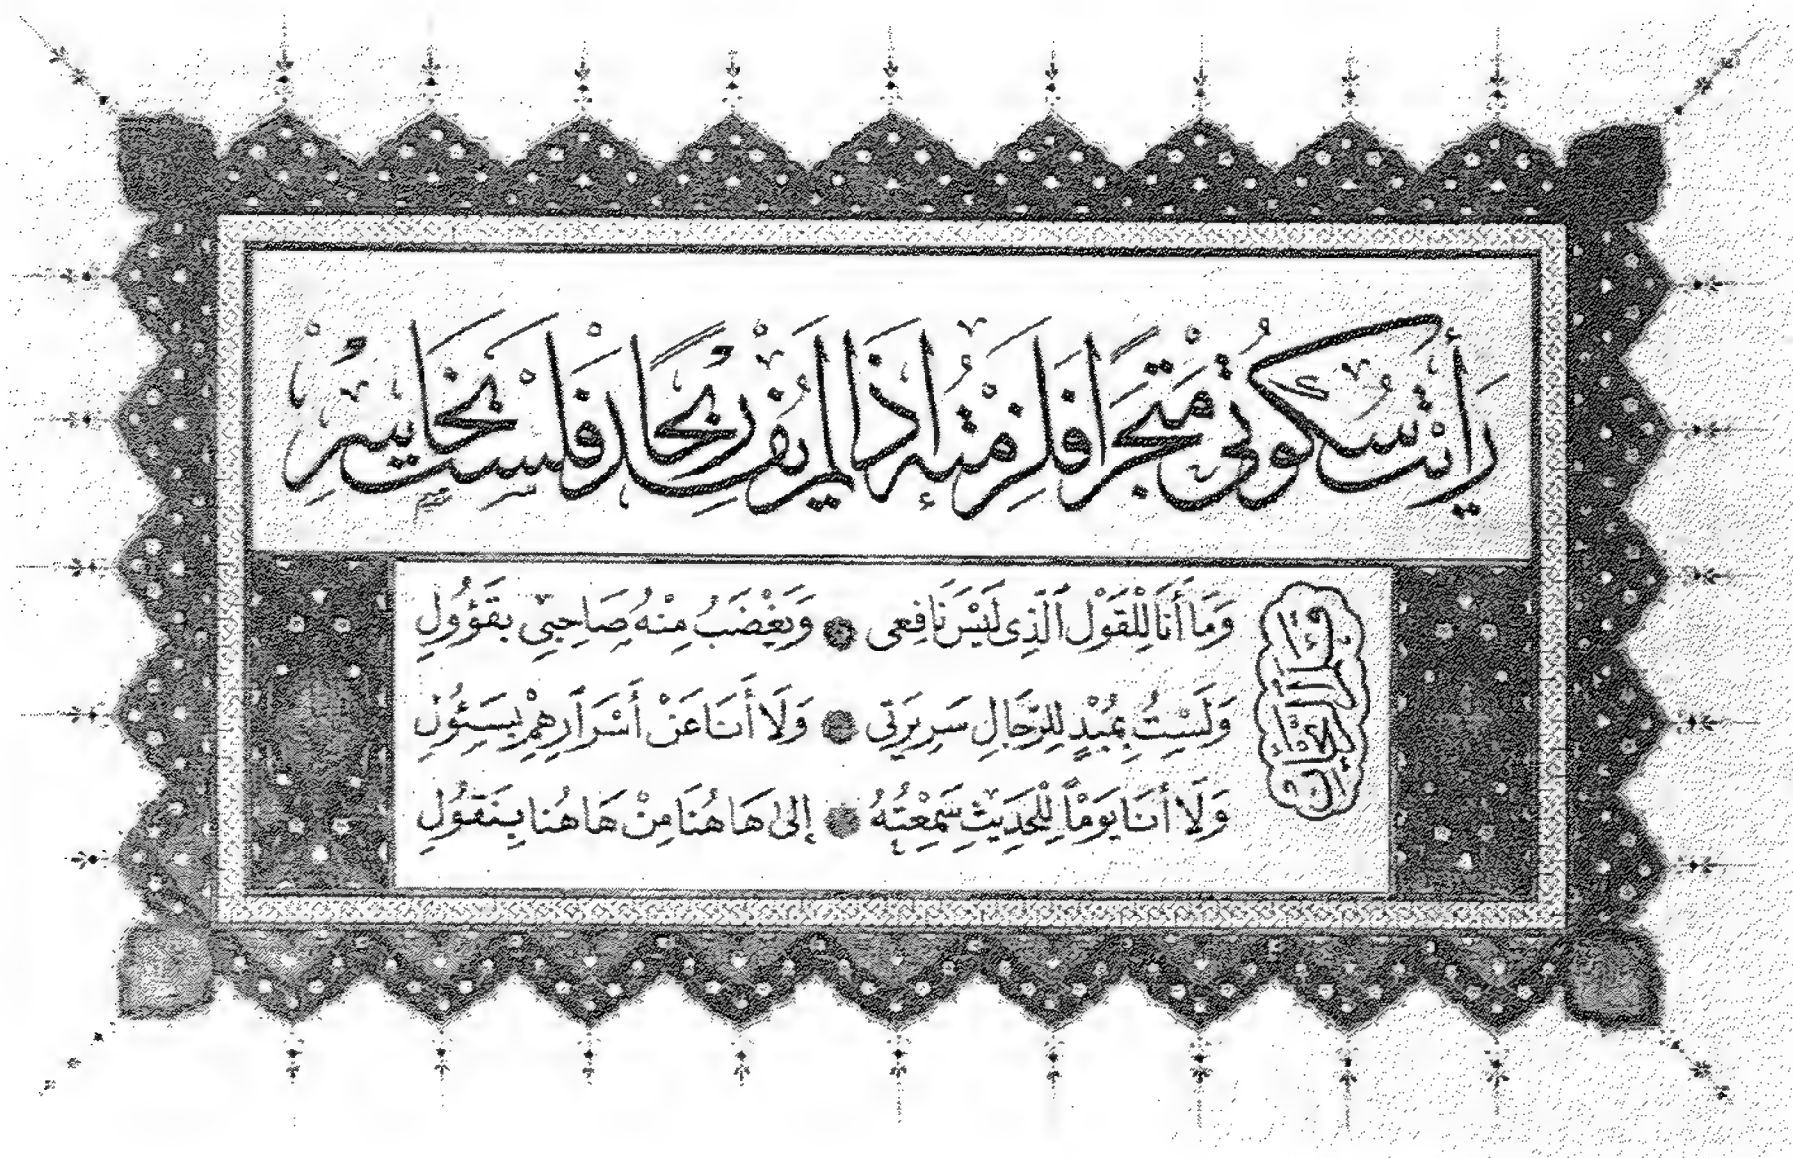 رَأَيْتُ سُكُوتِي مَتْجَراً فَلَزِمْتُهُ إِذَا لَمْ يُفِدْ رِبْحاً فَلَسْتُ بِخَاسِرِ
وَمَا أَنَا لِلْقَوْلِ الَّذِى لَيْسَ نَافِعِى وَيَغْضَبُ مِنْهُ صَاحِبِى بِقَؤُولِ
وَلَسْتُ بِمُبْدٍ لِلرِّجَالِ سَرِيرَتِى وَلَا أَنَا عَنْ أَسْرَارِهِمْ بِسَئُولِ
وَلَا أَنَا يَوْماً لِلْحَدِيثِ سَمِعْتُهُ إِلىٰ هَا هُنَا مِنْ هَا هُنَا بِنَقُولِ